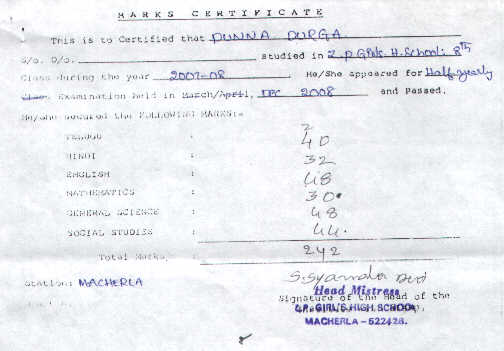 MARKS CERTIFICATE
This is to Certified that PUNNA DURGA
S/o. D/o. studied in Z.P Girls. H. School: 8th
Class during the year 2007-08 He/She appeared for Half-yearly
Examination held in March/April, DEC 2008 and Passed.
He/she secured the FOLLOWING MARKS:-
TELUGU : 40
HINDI : 32
ENGLISH : 48
MATHEMATICS : 30
GENERAL SCIENCE : 48
SOCIAL STUDIES : 44.
Total Marks : 242
Station: MACHERLA
Head Mistress
Signature of the Head of the
Z.P. GIRL'S HIGH SCHOOL
MACHERLA - 522426.